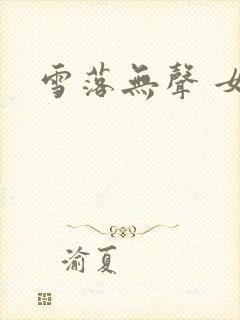 雪落無聲 女
渝夏